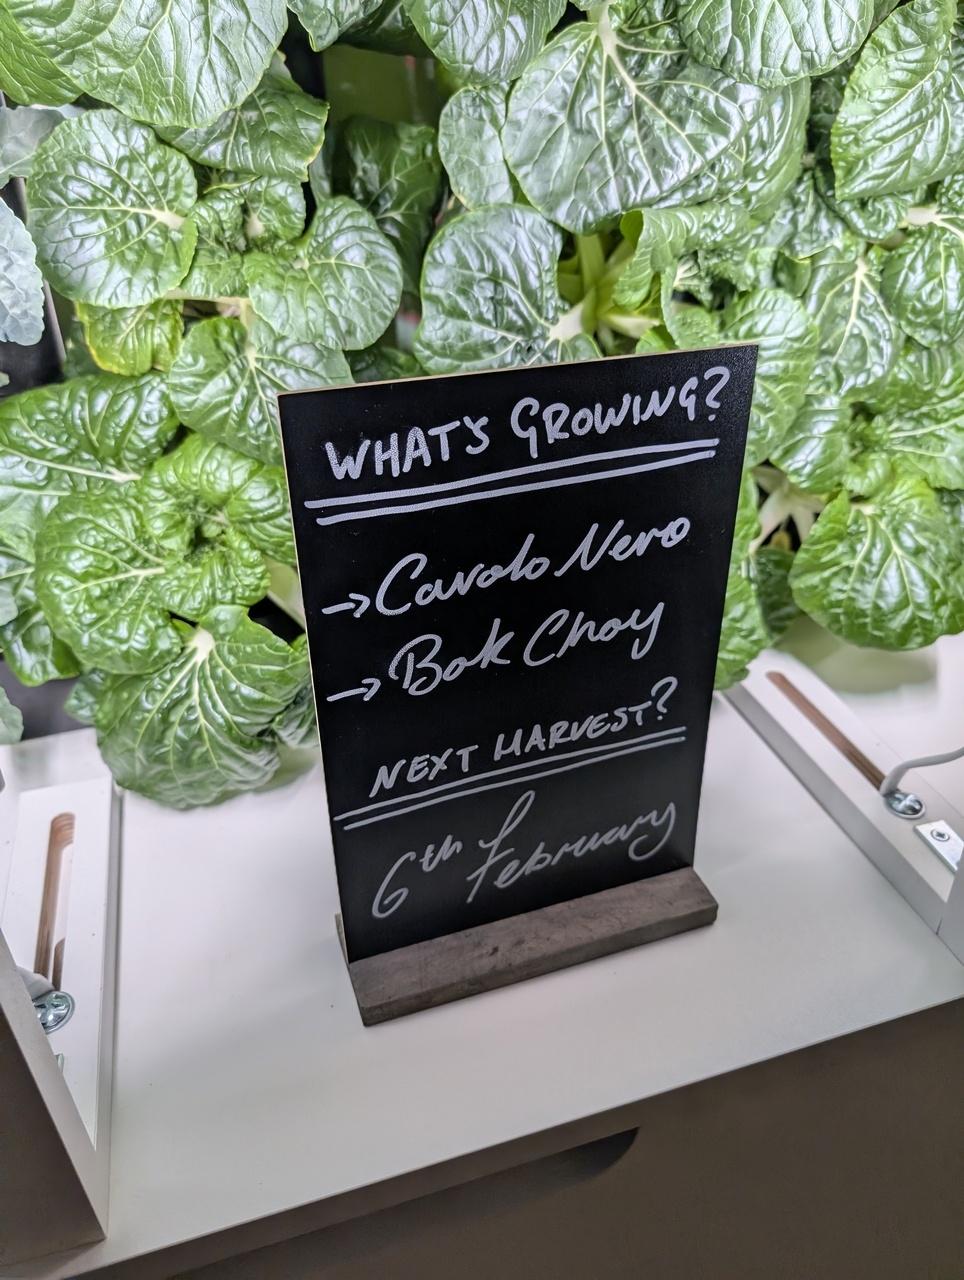 WHAT'S GROWING?
→ Cavolo Nero
→ Bok Choy
NEXT HARVEST?
6th February